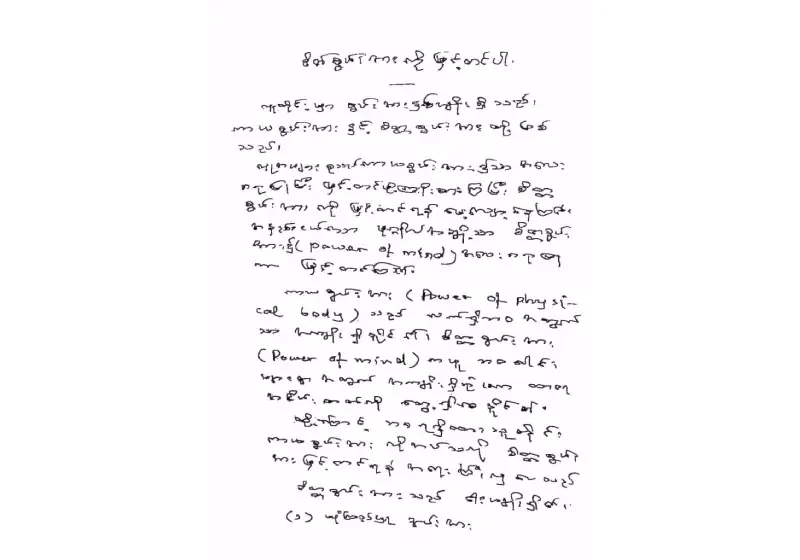 စိတ်စွမ်းအားကို မြှင့်တင်ပါ။
လူတိုင်းမှာ စွမ်းအားနှစ်မျိုးရှိသည်၊
ကာယစွမ်းအား နှင့် စိတ္တစွမ်းအားတို့ ဖြစ်
သည်၊
လူအများစုသည် ကာယစွမ်းအား၌သာ အလေး
ပြုပြီး မြှင့်တင်ဖို့ ကြိုးစားကြပြီး စိတ္တ
စွမ်းအားကို မြှင့်တင်ရန် မေ့လျော့နေကြ၏၊
အနည်းငယ်သော ပုဂ္ဂိုလ်အချို့သာ စိတ္တစွမ်း
အား၌ (power of mind) အလေး ဂရုပြု
ကာ မြှင့်တင်ကြ၏၊
ကာယစွမ်းအား (Power of physi-
cal body) သည် ယခုဘဝ အတွက်
သာ အကျိုးရှိနိုင်၏၊ စိတ္တစွမ်းအား
(Power of mind) ကမူ ဘဝပေါင်း
များစွာ အတွက် အကျိုးရှိရုံမက
အငြိမ်းဓာတ်ကို တွေ့ရှိစေနိုင်၏။
ထို့ကြောင့် ဘဝရရှိထားသူတိုင်း
ကာယစွမ်းအား ကဲ့သို့ စိတ္တစွမ်း
အား မြှင့်တင်ရန် အရေးကြီးလှပေသည်
စိတ္တစွမ်းအားသည် ငါးမျိုးရှိ၏၊
(၁) ယုံကြည်မှု စွမ်းအား